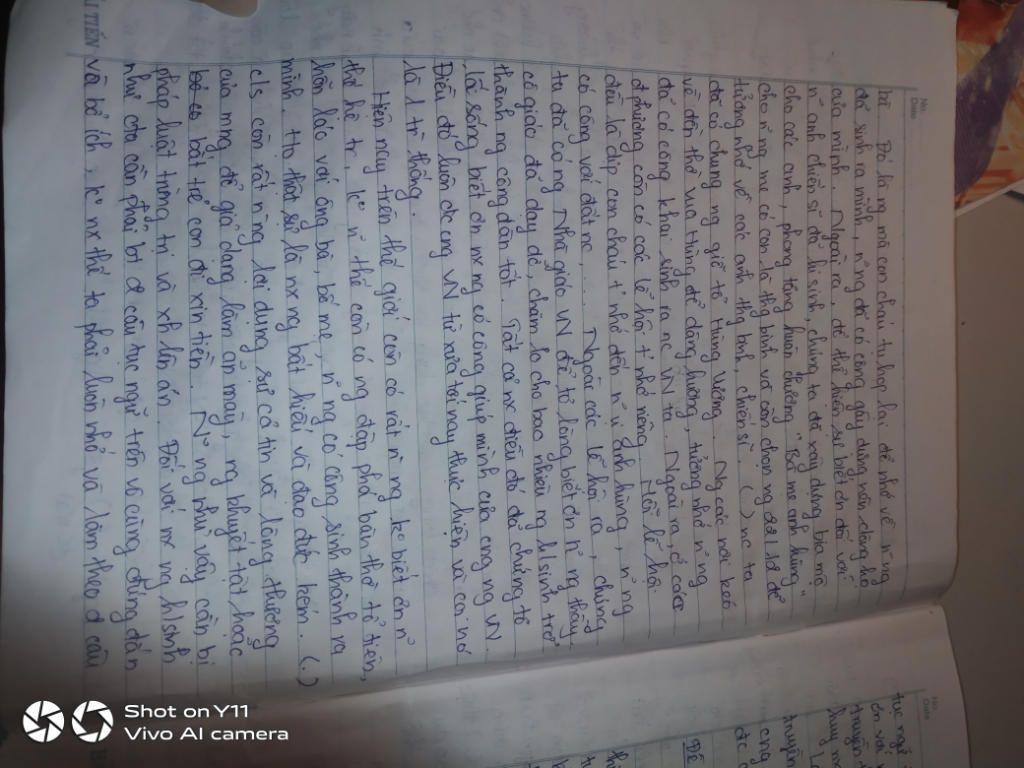 No.
Date
bè. Đó là ng mà con cháu tụ họp lại để nhớ về n~ ng
đã sinh ra mình, n~ ng đã có công gây dựng nên dòng họ
của mình. Ngoài ra, để thể hiện sự biết ơn đối với
n~ anh chiến sĩ đã hi sinh, chúng ta đã xây dựng bia mộ
cho các anh, phong tặng huân chương "Bà mẹ anh hùng"
cho n~ ng mẹ có con là thg binh và còn chọn ng 22/12 để
tưởng nhớ về các anh thg binh, chiến sĩ. (.) nc ta
đã có chung ng giỗ tổ Hùng Vương. Ng các nơi kéo
về đền thờ vua Hùng để dâng hương, tưởng nhớ n~ ng
đã có công khai sinh ra nc VN ta. Ngoài ra, ở các
địa phương còn có các lễ hội t' nhớ riêng. Mỗi lễ hội
đều là dịp con cháu t' nhớ đến n~ vị anh hùng, n~ ng
có công với đất nc.... Ngoài các lễ hội ra, chúng
ta đã có ng Nhà giáo VN để tỏ lòng biết ơn n~ ng thầy,
cô giáo đã dạy dỗ, chăm lo cho bao nhiêu ng h/sinh trở
thành ng công dân tốt. Tất cả nx điều đó đã chứng tỏ
lối sống biết ơn nx ng có công giúp mình của cng ng VN.
Điều đó luôn dc ng VN từ xưa tới nay thực hiện và coi nó
là 1 tr` thống.
Hiện nay trên thế giới còn có rất n` ng ko biết ơn n~
thế hệ tr', ko n~ thế còn có ng đập phá bàn thờ tổ tiên,
hỗn láo với ông bà, bố mẹ, n~ ng có công sinh thành ra
mình. Họ thật sự là nx ng bất hiếu và đạo đức kém. (.)
c/s còn rất n` ng lợi dụng sự cả tin và lòng thương
của mng để giả dạng làm ăn mày, ng khuyết tật hoặc
bắt trẻ con đi xin tiền. N~ ng như vậy cần bị
pháp luật trừng trị và xh lên án. Đối với nx ng h/sinh
như cta cần phải b' ơ câu tục ngữ trên vô cùng đúng đắn
và bổ ích, ko nx thế ta phải luôn nhớ và làm theo ơ câu
ẢI TIẾN
No.
Date
tục ngữ
ơn với
truyền t
huy m
truyền
cng
dc c
Đề
Shot on Y11
Vivo AI camera